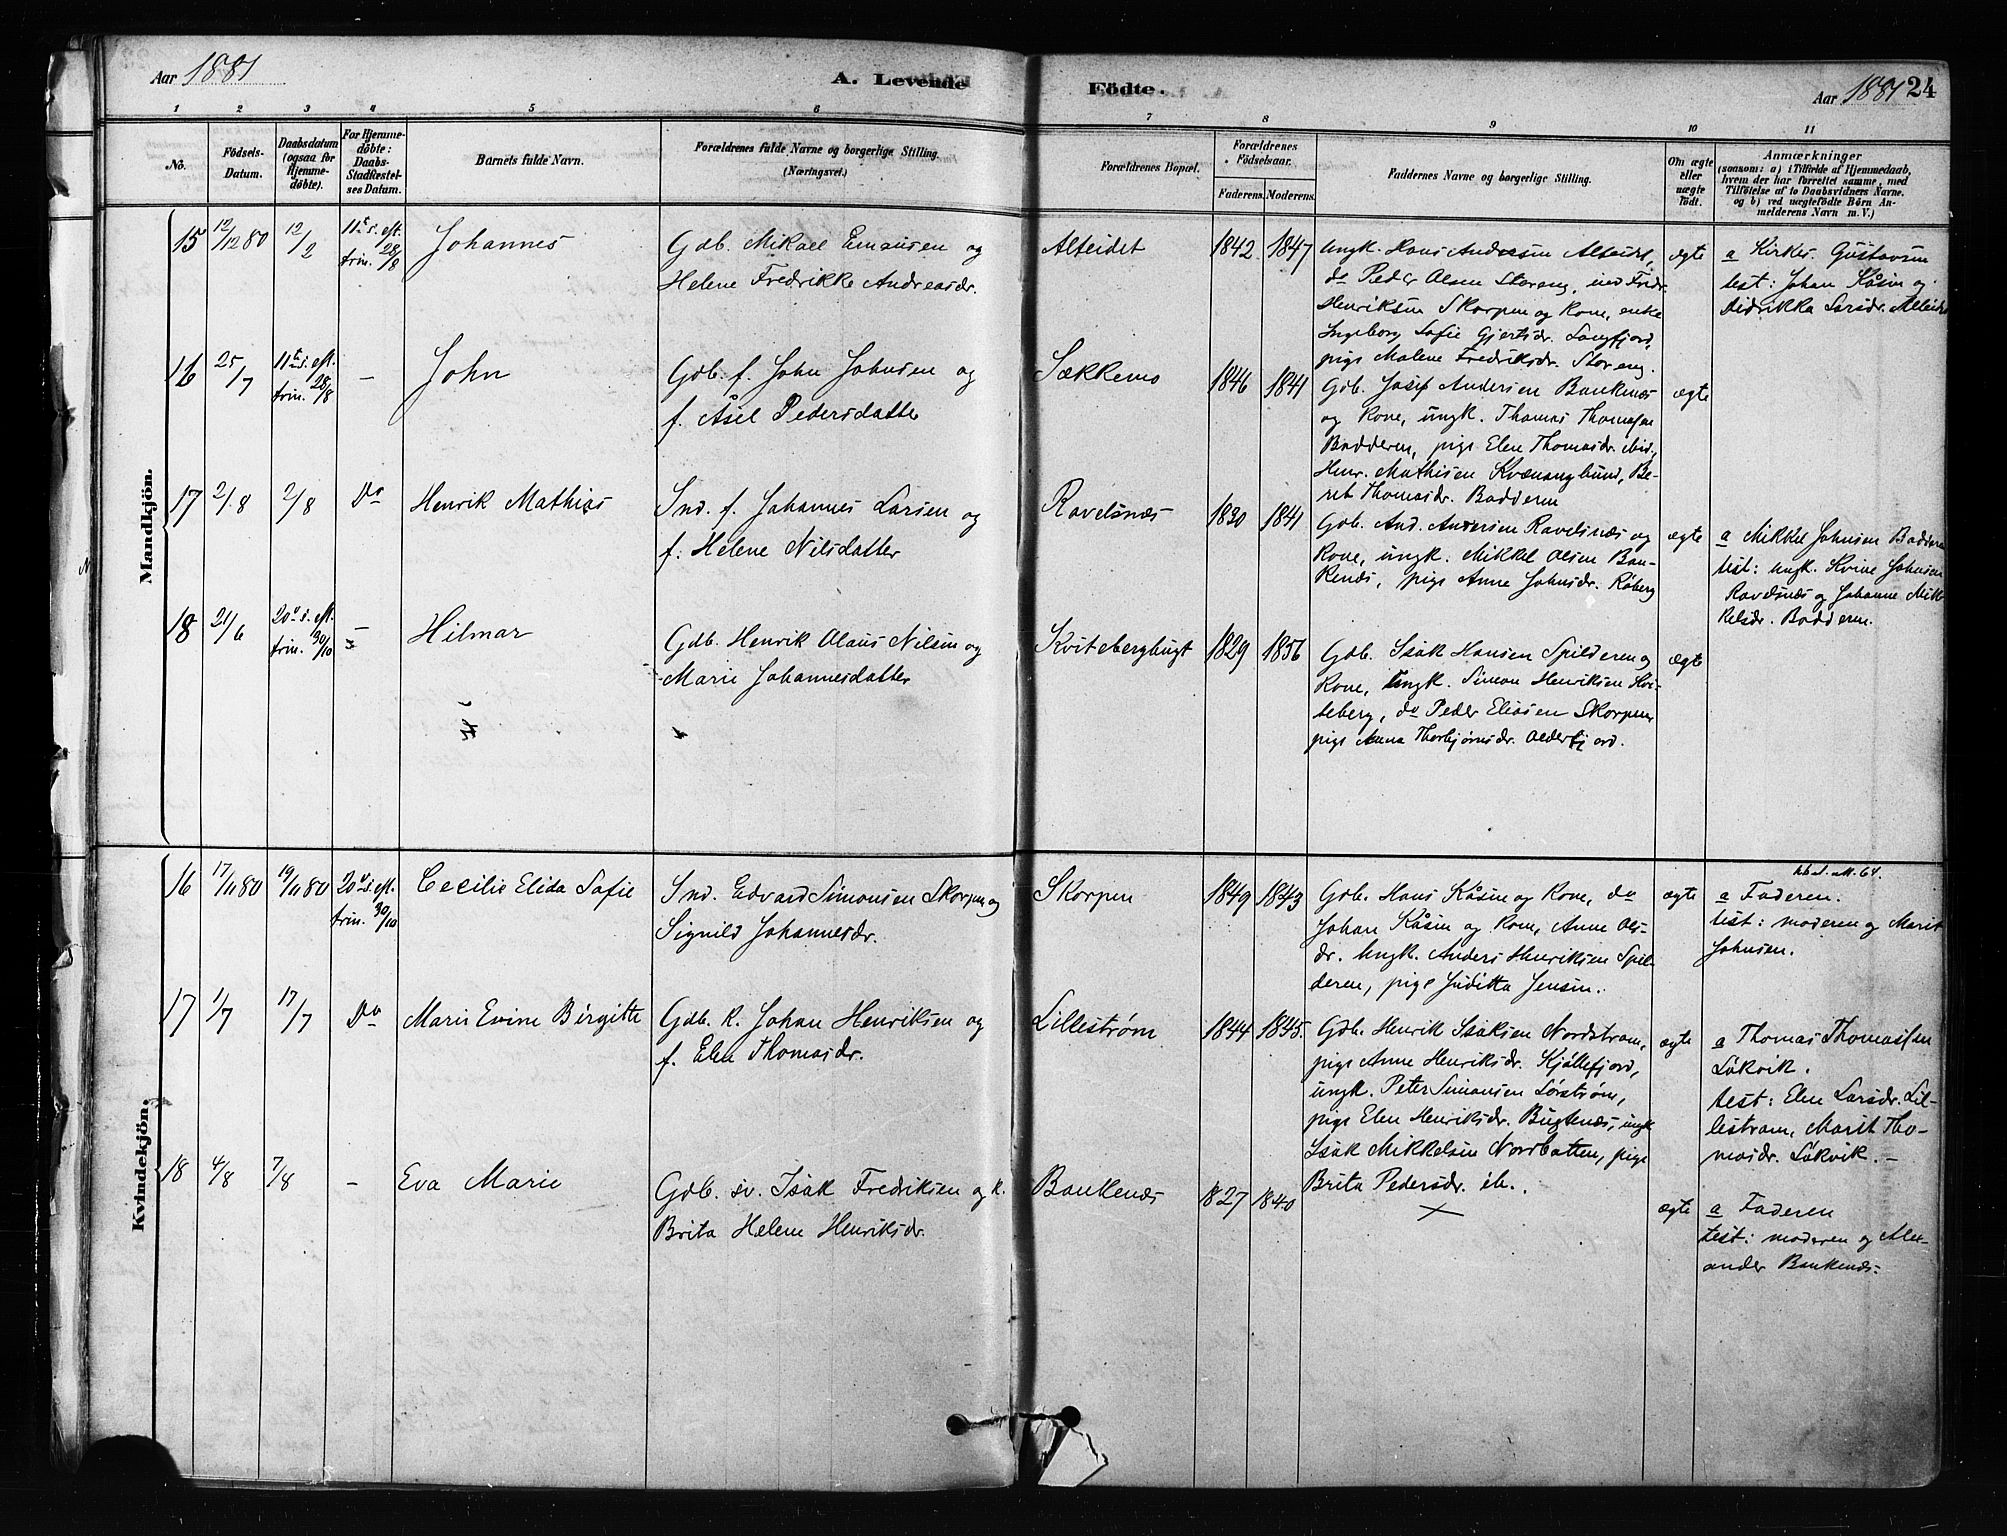 Aar 1881
A. Levende
Födte.
Aar 1881 24
1 2 3 4 5 6 7 8 9 10 11
No.
Födsels-
Datum.
Daabsdatum
(ogsaa for
Hjemme-
döbte).
For Hjemme-
döbte:
Daabs-
Stadfæstel-
ses Datum.
Barnets fulde Navn.
Forældrenes fulde Navne og borgerlige Stilling.
(Næringsvei.)
Forældrenes Bopæl.
Forældrenes
Födselsaar.
Faderens. Moderens.
Faddernes Navne og borgerlige Stilling.
Om ægte
eller
uægte
födt.
Anmærkninger
(saasom: a) i Tilfælde af Hjemmedaab,
hvem der har forrettet samme, med
Tilföielse af to Daabsvidners Navne.
og b) ved uægtefödte Börn An-
melderens Navn m. V.)
Mandkjön.
15 12/12 80 12/2
11te s. eft.
trin. 28/8
Johannes
Gdb. Mikael Emausen og
Helene Fredrikke Andreasdr.
Alteidet
1842 1847
Ungk. Hans Andreasen Alteidet,
do Peder Olsen Storeng, ind Fridr.
Henriksen Skorpen og Kone, enke
Ingeborg Sofie Gjertsdr. Langfjord,
pige Malene Fredriksdr. Storeng.
ægte
a Kirkes. Gustavsen
test: Johan Kåsin og
Didrikka Larsdr. Alteidet
16 25/7
11te s. eft.
trin. 28/8
—
John
Gdb. f. John Johnsen og
f. Åsel Pedersdatter
Sækkemo
1846 1841
Gdb. Josef Andersen Baukenæs
og Kone, ungk. Thomas Thomassen
Badderen, pige Elen Thomasdr. ibid.,
Henr. Mathisen Kvænangbund, Be-
ret Thomasdr. Badderen
ægte
17 2/8 2/8 Do
Henrik Mathias
Ind. f. Johannes Larsen og
f. Helene Nilsdatter
Ravelsnæs
1830 1841
Gdb. And. Andersen Ravelsnæs og
Kone, ungk. Mikkel Olsen Bau-
kenæs, pige Anne Johnsdr. Råberg
ægte
a Mikkel Johnsen Badderen
test: ungk. Kvine Johnsen
Ravelsnæs og Johanne Mik-
kelsdr. Badderen.
18 21/6
20de s. eft.
trin. 30/10
—
Hilmar
Gdb. Henrik Olaus Nilsen og
Marie Johannesdatter
Kviteberghugt
1829 1856
Gdb. Isak Hansen Spilderen og
Kone, Ungk. Simon Henriksen Kvi-
teberg, do Peder Eliasen Skorpen,
pige Anna Thorbjørnsdr. Alderfjord.
ægte
Kvindekjön.
16 17/11 80 19/11 80
20de s. eft.
trin. 30/10
Cecilie Elida Sofie
Ind. Edvard Simonsen Skorpen og
Signild Johannesdr.
Skorpen
1849 1843
Gdb. Hans Kåsin og Kone, do
Johan Kåsin og Kone, Anne Ols-
dr. Ungk. Anders Henriksen Spil-
deren, pige Juditta Jensen.
ægte
a Faderen.
test: moderen og Marit
Johnsen.
17 1/7 17/7 Do
Maris Evine Birgitte
Gdb. k. Johan Henriksen og
f. Elen Thomasdr.
Lillestrøm
1844 1845.
Gdb. Henrik Isaksen Nordstrøm,
pige Anne Henriksdr. Kjøllefjord,
ungk. Peter Simonsen Sørstrøm,
pige Elen Henriksdr. Bugtenæs, ungk
Isak Mikkelsen Nordbotten, pige
Brita Pedersdr. ib.
ægte
a Thomas Thomassen
Låkvik.
test: Elen Larsdr. Lil-
lestrøm, Marit Tho-
masdr. Låkvik. —
18 4/8 7/8 —
Eva Marie
Gdb. sv. Isak Fredriksen og k.
Brita Helene Henriksdr.
Baukenæs
1827 1840
×
ægte
a Faderen
test: moderen og Alex-
ander Baukenæs.